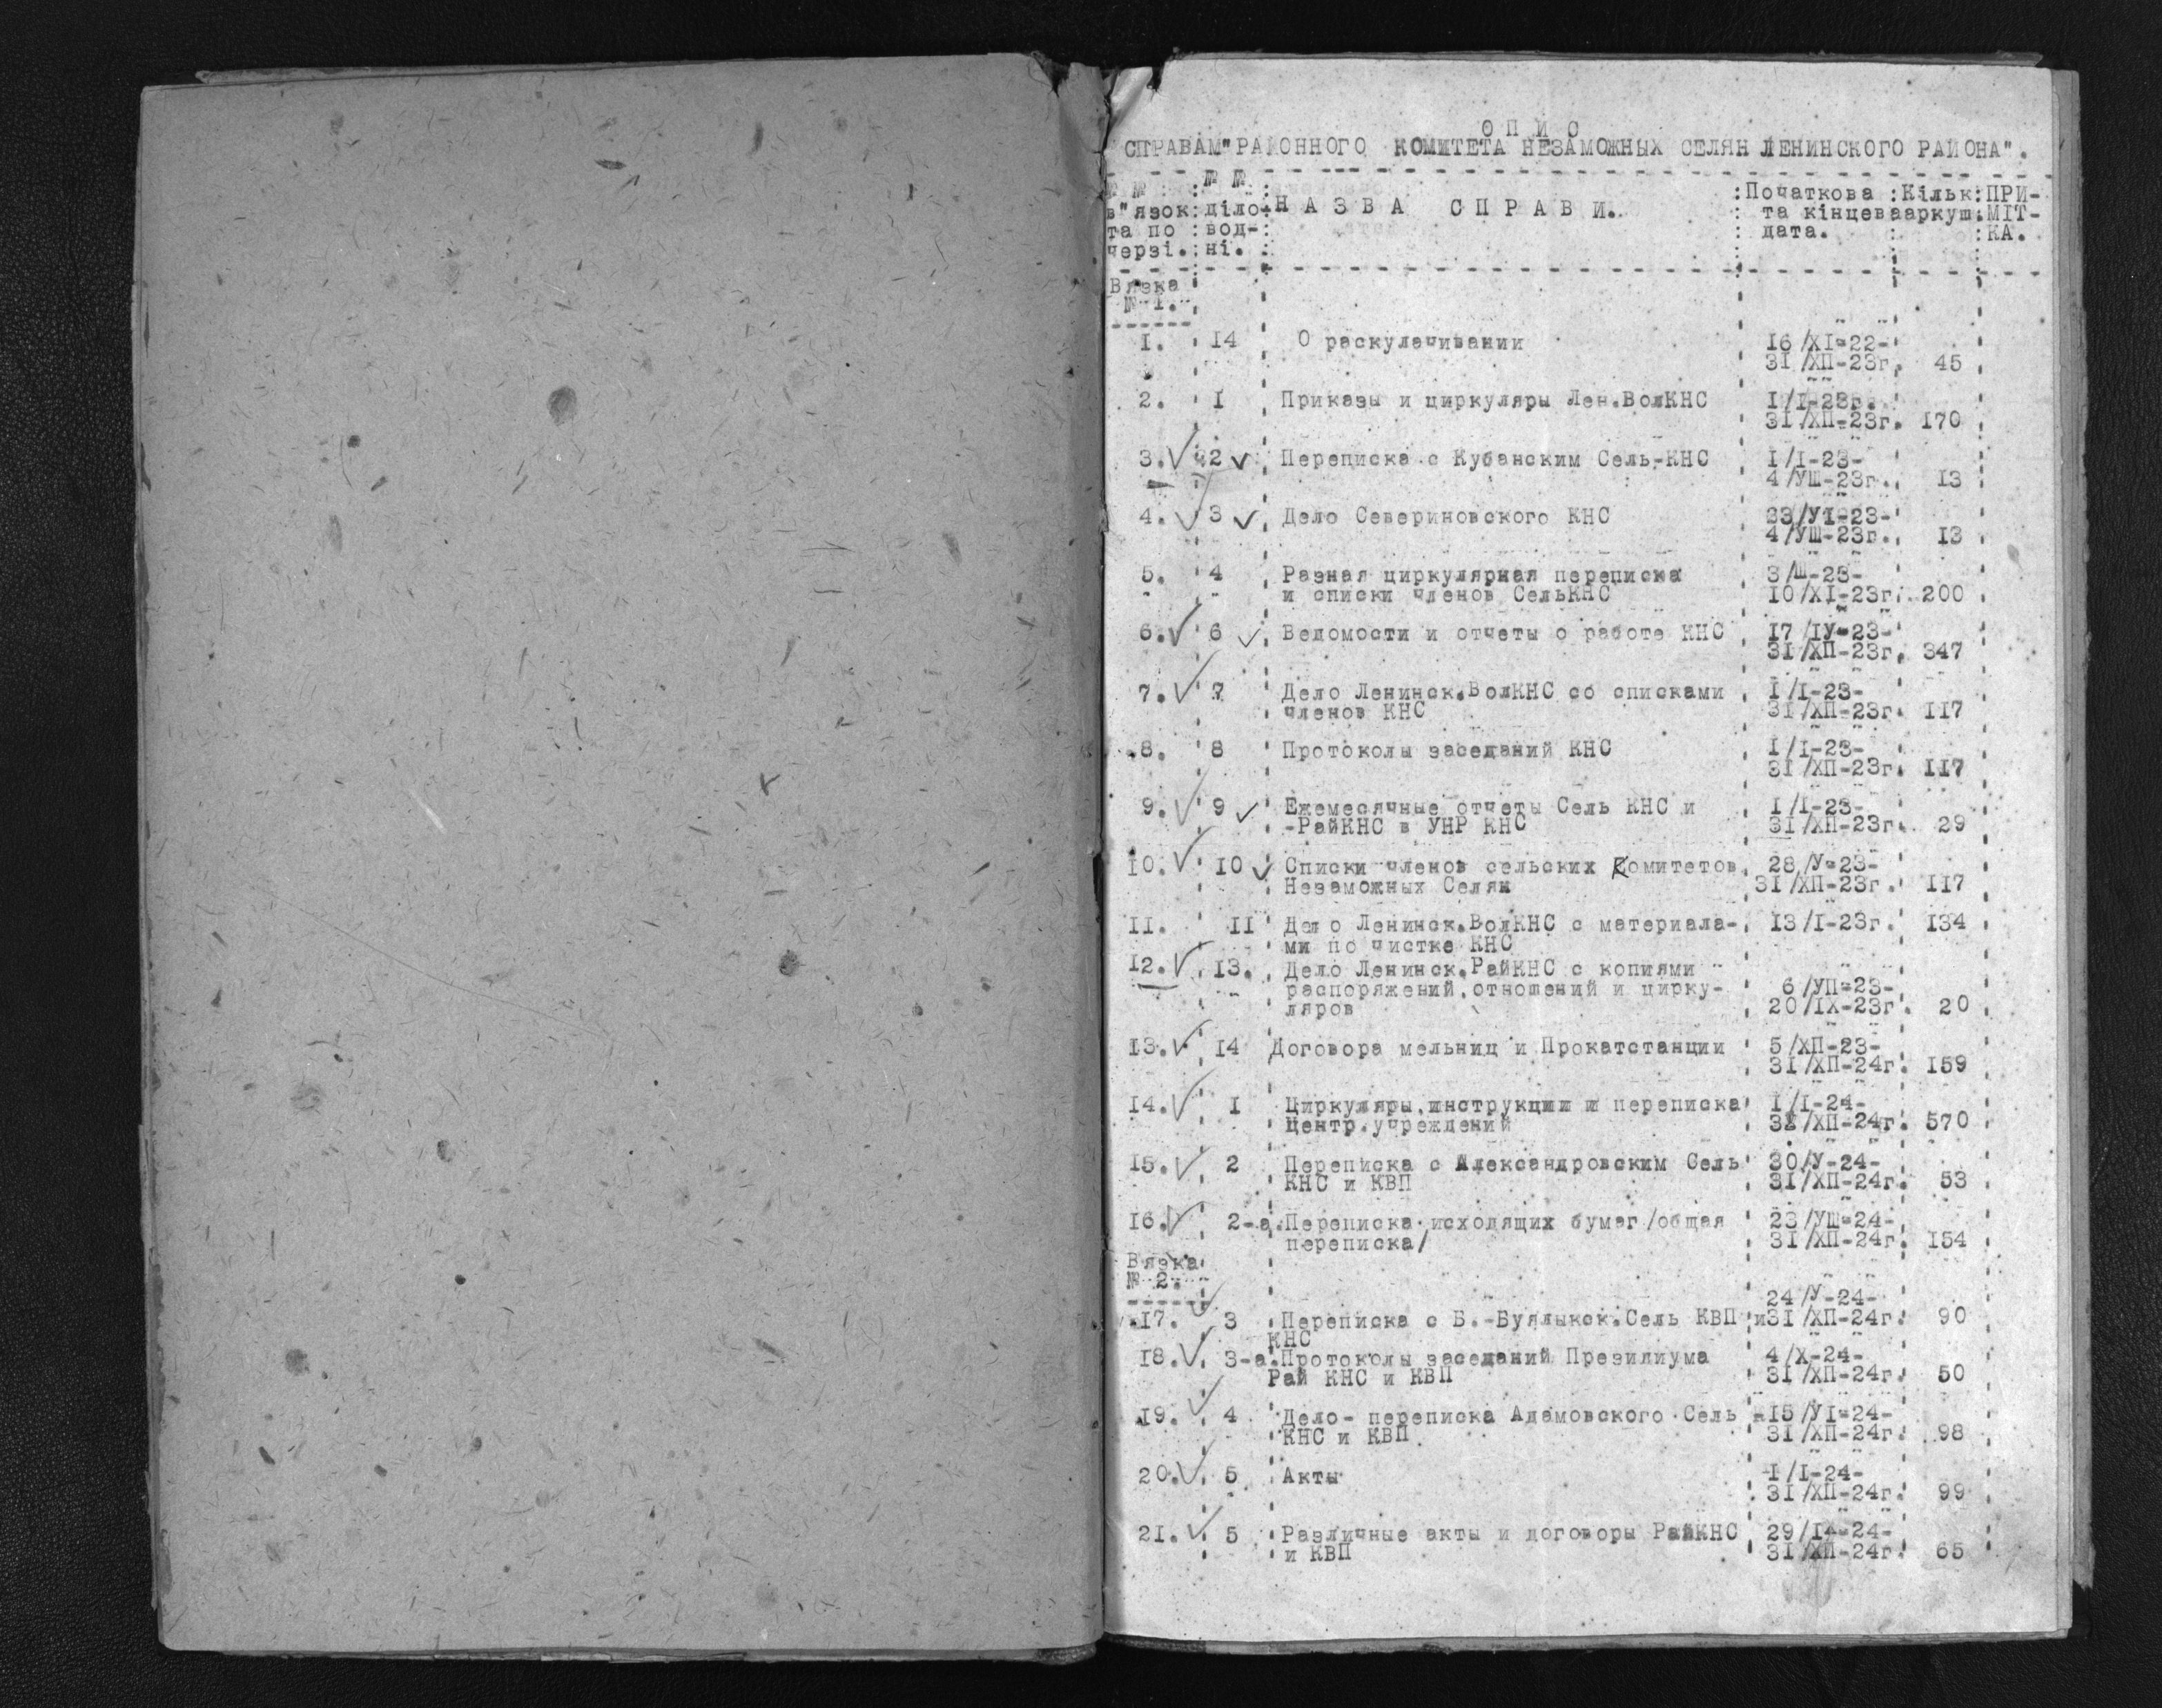 О П И С
СПРАВАМ"РАЙОННОГО КОМИТЕТА НЕЗАМОЖНЫХ СЕЛЯН ЛЕНИНСКОГО РАЙОНА".
№ № : № № : Н А З В А С П Р А В И. :Початкова :Кільк:ПРИ-
в"язок: діло-: та кінцева аркуш:МІТ-
та по : вод-: : дата. : :КА.
черзі.: ні. :
Вязка
№ 1.
1. 14 О раскулачивании 16/XI-22-
31/ХП-23г. 45
2. I Приказы и циркуляры Лен.ВолКНС I/I-23г.
31/ХП-23г. 170
3. 2 Переписка с Кубанским Сель-КНС I/I-23-
4/УШ-23г. 13
4. 3 Дело Севериновского КНС 23/УI-23-
4/УШ-23г. 13
5. 4 Разная циркулярная переписка 3/Ш-23-
и списки членов СельКНС 10/XI-23г. 200
6. 6 Ведомости и отчеты о работе КНС 17/IУ-23-
31/ХП-23г. 347
7. 7 Дело Ленинск.ВолКНС со списками I/I-23-
членов КНС 31/ХП-23г. 117
8. 8 Протоколы заседаний КНС I/I-23-
31/ХП-23г. 117
9. 9 Ежемесячные отчеты Сель КНС и I/I-23-
-РайКНС в УНР КНС 31/ХП-23г. 29
10. 10 Списки членов сельских Комитетов 28/У-23-
Незаможных Селян 31/ХП-23г. 117
11. 11 Дело Ленинск.ВолКНС с материала- 13/I-23г. 134
ми по чистке КНС
12. 13. Дело Ленинск.РайКНС с копиями
распоряжений,отношений и цирку- 6/УП-23-
ляров 20/IX-23г. 20
13. 14 Договора мельниц и Прокатстанции 5/ХП-23-
31/ХП-24г. 159
14. I Циркуляры,инструкции и переписка I/I-24-
Центр.учреждений 31/ХП-24г. 570
15. 2 Переписка с Александровским Сель 30/У-24-
КНС и КВП 31/ХП-24г. 53
16. 2-а.Переписка исходящих бумаг/общая 23/УШ-24-
переписка/ 31/ХП-24г. 154
Вязка
№ 2.
24/У-24-
17. 3 Переписка с Б.-Буялыкск.Сель КВП и 31/ХП-24г. 90
КНС
18. 3-а.Протоколы заседаний Презилиума 4/Х-24-
Рай КНС и КВП 31/ХП-24г. 50
19. 4 Дело- переписка Адамовского Сель -15/УI-24-
КНС и КВП 31/ХП-24г. 98
20. 5 Акты I/I-24-
31/ХП-24г. 99
21. 5 Различные акты и договоры РайКНС 29/
и КВП 31/ХП-24г. 65